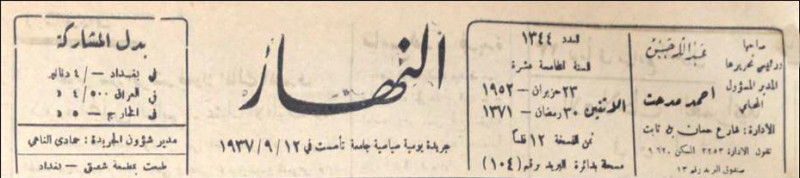 صاحبها
ورئيس تحريرها
عبدالله حسن
المدير المسؤول
المحامي
احمد مدحت
الادارة : شارع حسان بن ثابت
تلفون الادارة ٣٢٥٣ السكن ٩٦٢٠
صندوق البريد رقم ١٣
العدد ١٣٤٤
السنة الخامسة عشرة
الاثنين
٢٣ حزيران – ١٩٥٢
٣٠ رمضان – ١٣٧١
ثمن النسخة ١٢ فلسا
مسجلة بدائرة البريد برقم (١٠٤)
النهار
جريدة يومية سياسية جامعة تأسست في ١٢/٩/١٩٣٧
بدل المشاركة
في بغداد –/٤ دنانير
في العراق ٥٠٠/٤ د
في الخارج –/٥ د
مدير شؤون الجريدة : حمادي الناهي
طبعت بمطبعة شفيق – بغداد